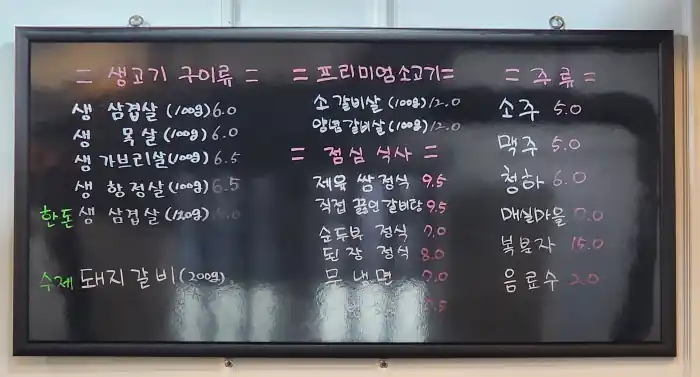 = 생고기 구이류 =
생 삼겹살 (100g) 6.0
생 목살 (100g) 6.0
생 가브리살 (100g) 6.5
생 항정살 (100g) 6.5
한돈 생 삼겹살 (120g)
수제 돼지갈비 (200g)
= 프리미엄소고기 =
소갈비살 (100g) 12.0
양념갈비살 (100g) 12.0
= 점심 식사 =
제육 쌈정식 9.5
직접 끓인 갈비탕 9.5
순두부 정식 7.0
된장 정식 8.0
물냉면 7.0
= 주류 =
소주 5.0
맥주 5.0
청하 6.0
매실마을 7.0
복분자 15.0
음료수 2.0